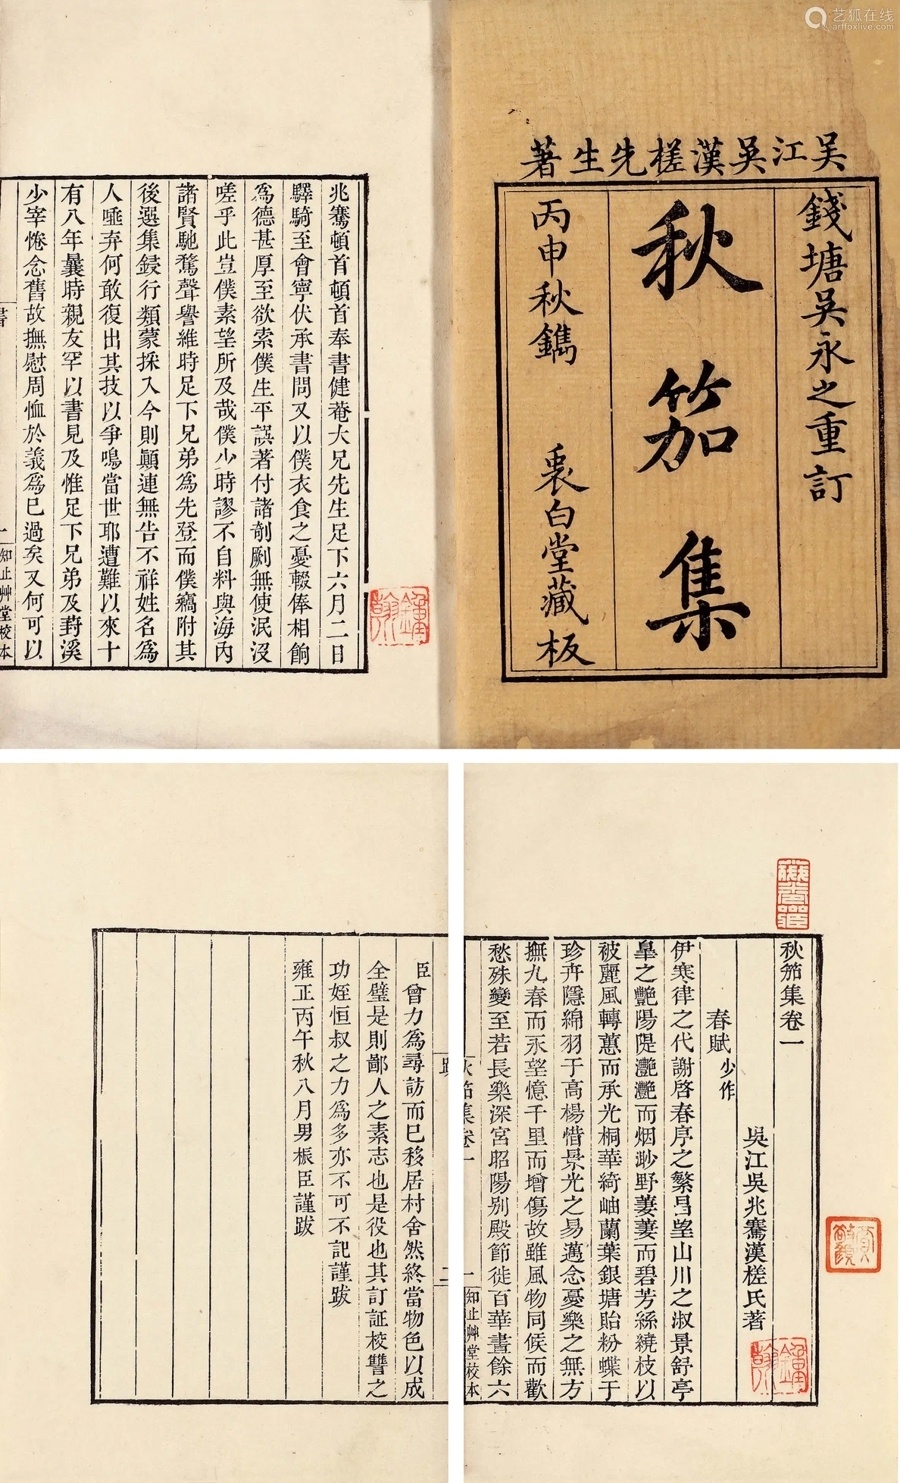 艺狐在线
artfoxlive.com
吴江吳漢槎先生著
錢塘吳永之重訂
秋笳集
丙申秋鐫 衷白堂藏板
兆騫頓首頓首奉書健菴大兄先生足下六月二日
驛騎至會寧伏承書問又以僕衣食之憂輟俸相餉
爲德甚厚至欲索僕生平誤著付諸剞劂無使泯沒
嗟乎此豈僕素望所及哉僕少時謬不自料與海內
諸賢馳騖聲譽維時足下兄弟爲先登而僕竊附其
後選集録行類蒙採入今則顛連無告不祥姓名爲
人唾弃何敢復出其技以爭鳴當世耶遭難以來十
有八年曩時親友罕以書見及惟足下兄弟及葑溪
少宰惓念舊故撫慰周恤於義爲已過矣又何可以
書
一
知止艸堂校本
秋笳集卷一
吳江吳兆騫漢槎氏著
春賦 少作
伊寒律之代謝啓春序之繁昌望山川之淑景舒亭
臯之艷陽隄灎灎而烟渺野萋萋而碧芳絲繞枝以
被麗風轉蕙而承光桐華綺岫蘭葉銀塘貽粉蝶于
珍卉隱綿羽于高楊惜景光之易邁念憂樂之無方
撫九春而永望憶千里而增傷故雖風物同候而歡
愁殊變至若長樂深宮昭陽別殿節徙百華晝餘六
秋笳集卷一
一
知止艸堂校本
跋
二
臣曾力爲尋訪而已移居村舍然終當物色以成
全璧是則鄙人之素志也是役也其訂証校讐之
功姪恒叔之力爲多亦不可不記謹跋
雍正丙午秋八月男桭臣謹跋